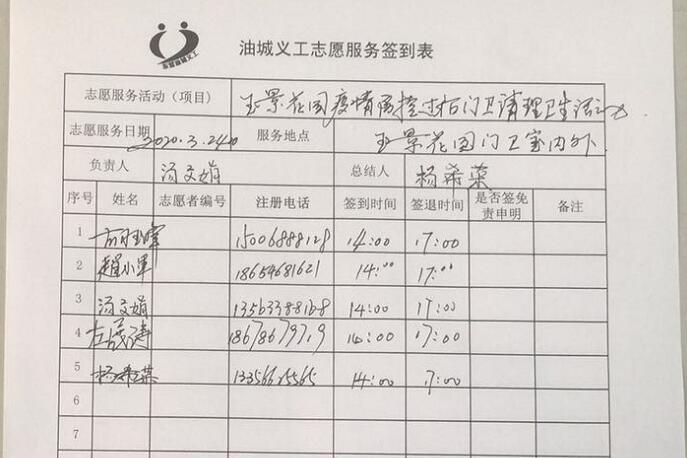 油城义工志愿服务签到表
志愿服务活动（项目） 玉景花园疫情防控过程门卫清理卫生活动
志愿服务日期 2020.3.24 服务地点 玉景花园门卫室内外
负责人 汤文娟 总结人 杨希荣
序号 姓名 志愿者编号 注册电话 签到时间 签退时间 是否签免责申明 备注
1 15006888128 14:00 17:00
2 赵小军 18654681621 14:00 17:00
3 汤文娟 13563388168 14:00 17:00
4 14:00 17:00
5 杨希荣 14:00 17:00
6
7